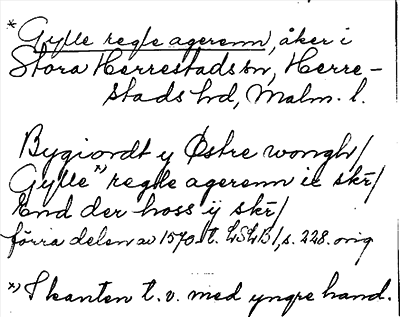 * Gylle regle agerenn, åker i
Stora Herrestads sn, Herre-
stads hd, Malm. l.
Bygiordt y Østre wongh/
Gylle *) regle agerenn ie skr/
End der hoss ij skr/
förra delen av 1570-t. LSLB 1, s. 228. orig
*) I kanten t. v. med yngre hand.